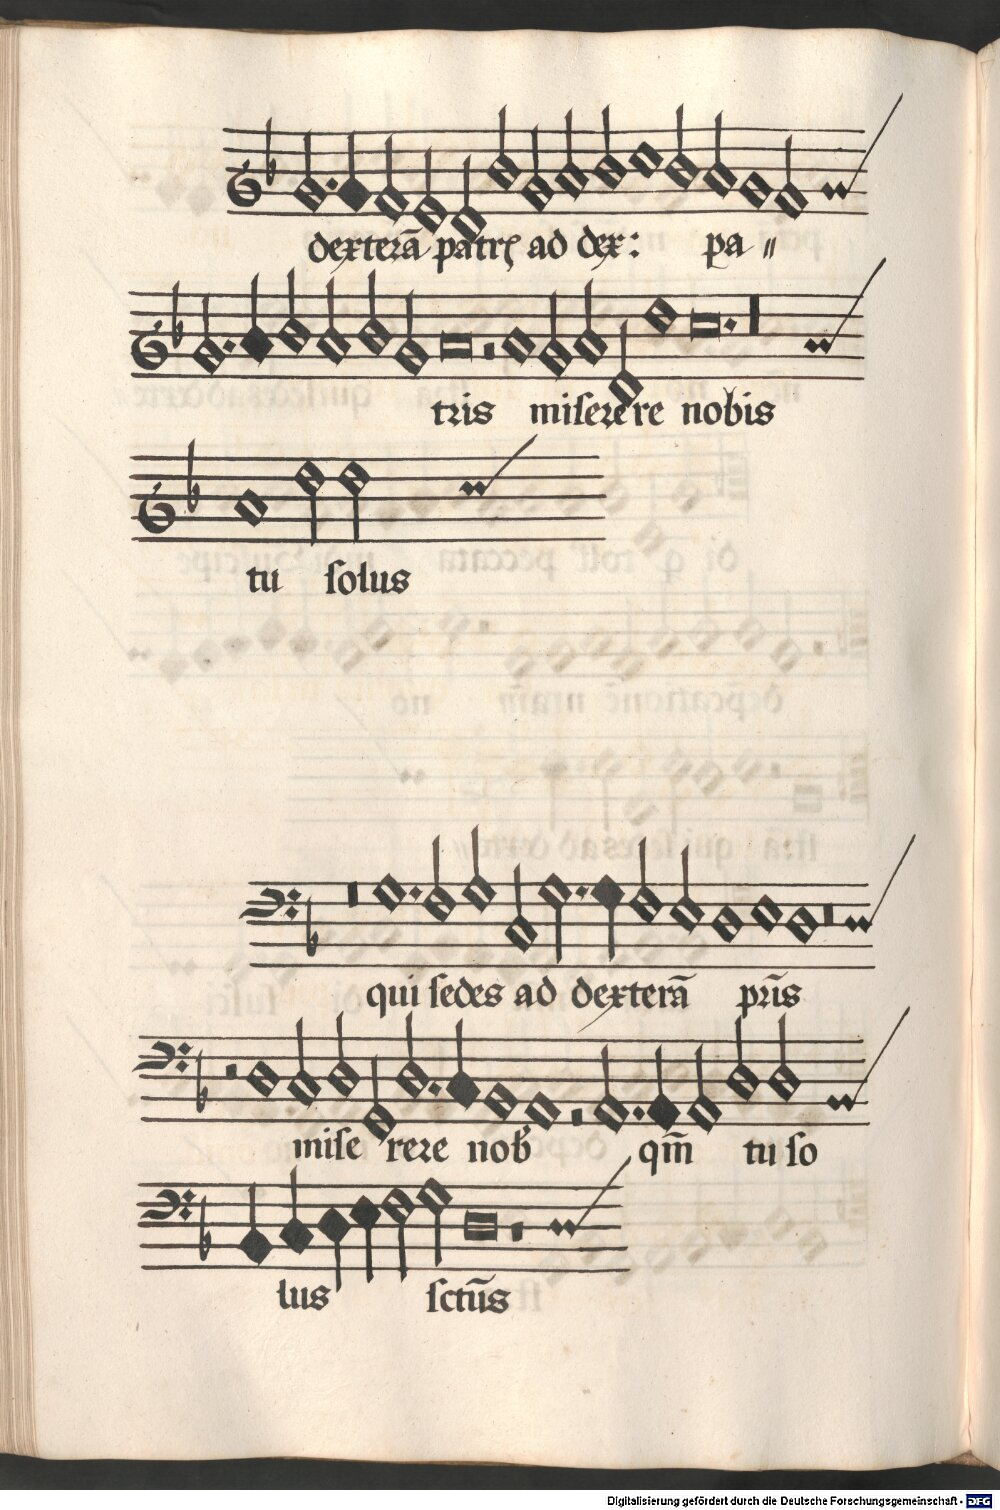 dexterā patrꝭ ad dex: pa〃
tris miserere nobis
tu solus
qui sedes ad dexterā pr̄is
miserere nob̾ qm̄ tu so
lus sct̄us
Digitalisierung gefördert durch die Deutsche Forschungsgemeinschaft - DFG